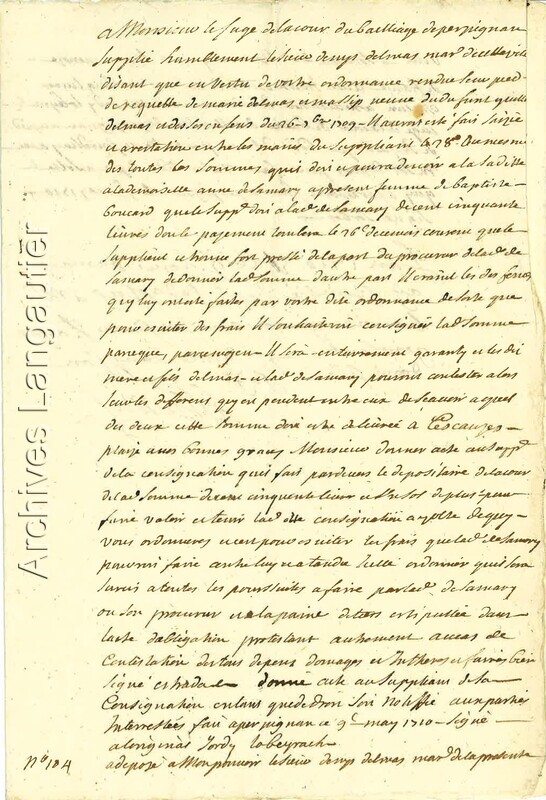 A Monsieur le Juge de la cour du bailliage de perpignan
Supplie humblement le sieur denys delmas mard. de cette ville
disant que en vertu de vostre ordonnance rendue au pied
de requette de marie delmas et massip veuve du defunt
delmas et de ses enfens du 26 1709 Il auroit esté fait saizie
et arrestation entre les mains du Suppliant le 28e. du mesme
des toutes les sommes qu'il doit et pourra devoir a la ditte
a la demoiselle anne de Samary a present femme de baptiste
boucard que le suppt. doit a lad. de Samary de cent cinquante
livres dont le payement tombera le 26e du mois courent que le
Suppliant se trouve fort pressé de la part du procureur de lad. de
Samary de donner lad. somme dautre part Il craint les defences
qui luy ont este faites par vostre dite ordonnance de sorte que
pour esviter des frais Il souhaiteroit consigner lad. somme
parceque, par ce moyen Il sera entierement garanty et les dits
mere et fils delmas et lad. de Samary pourront contester alors
seuls les differens quy en pendent entre eux de scavoir a quel
des deux cette somme doit estre delivrée à Ces causes
plaise a vos bonnes graces, Monsieur donner acte au suppt.
de la consignation qu'il fait par devers le depositaire de la cour
de lad. somme de cent cinquante livres et sol de plus pour
faire valoir et tenir lad. ditte consignation a de quoy
vous ordonneres et ce pour esviter les frais que lad. de Samary
pourroit faire contre luy et attendu ordonner qu'il sera
surcis a toutes les poursuites a faire par lad. de Samary
ou son procureur et a la peine de tous dans
lacte dobligation protestant autrement au cas de
Contestation de tous depens domages et Interes et faires bien
signé estrada donne acte au Suppliant de sa
Consignation en tant que de droit soit Notiffié aux parties
Interressées fait a perpignan ce 9e. may 1710 Signé
a loriginal Jordy Lobeyrach
No 184 a deposé a Mon pouvoir le sieur denys delmas mard. de la presente
Archives Langautier